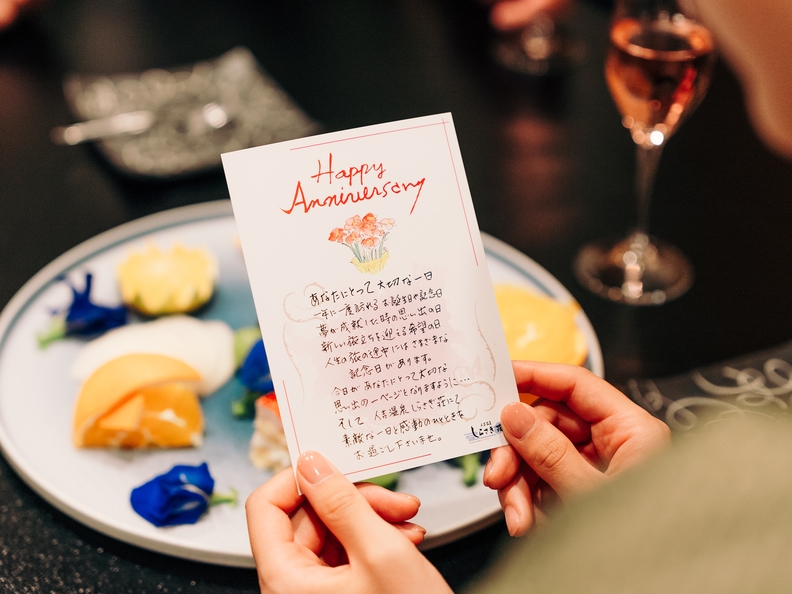 Happy
Anniversary
あなたにとって大切な一日
一年に一度訪れるお誕生日や記念日
夢が成就した時の思い出の日
新しい旅立ちを迎える希望の日
人生の旅の途中にはさまざまな
記念日があります。
今日があなたにとって大切な
思い出の一ページとなりますように…
そして 人吉温泉 しらさぎ荘にて
素敵な一日と感動のひとときを
お過ごし下さいませ。
しらさぎ荘